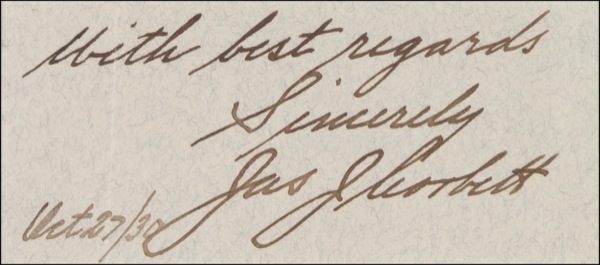 With best regards
Sincerely
Jas J Corbett
Oct 27/30